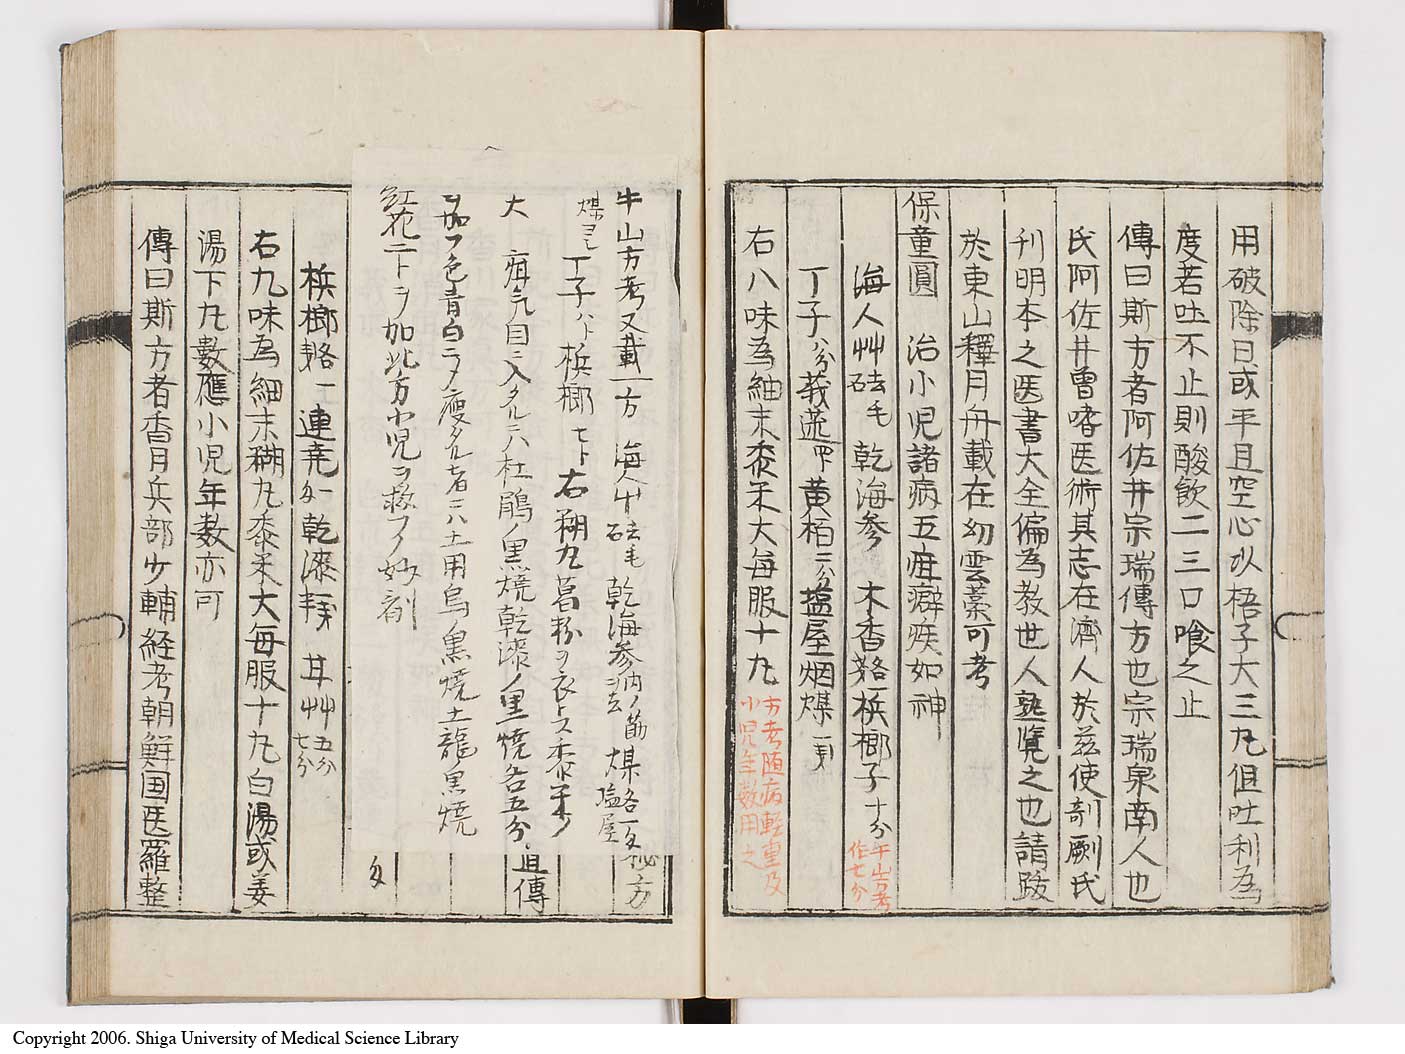 用破除日或平旦空心以梧子大三丸但吐利為
度若吐不止則酸飲二三口喰之止
傳曰斯方者阿佐井宗瑞傳方也宗瑞泉南人也
氏阿佐井曽嗜医術其志在濟人於茲使剞劂氏
刊明本之医書大全徧為教世人熟覽之也請跋
於東山釋月舟載在幻雲藁可考
保童圓 治小児諸病五疳癖疾如神
海人艸 砝毛 乾海参 木香 檳榔子十分
牛山方考作七分
丁子八分 莪蒁 黄栢二分 塩屋烟煤
右八味為細末黍米大每服十九
方考随病輕重及
小児年数用之
牛山方考又載一方 海人艸 砝毛 乾海参 煤各
塩屋
煤 丁子 檳榔 右糊丸葛粉ヲ衣
大 疳気目ニ入タルニハ杜鵑ノ黒焼乾漆ノ黒焼各五分
ヲ加フ色青白ニ〆瘦タル者ニハ土用烏ノ黒焼土龍黒焼
紅花ニトヲ加此方小児ヲ救フノ妙剤
秘方
道傳
檳榔 連堯 乾漆 甘艸五分
七分
右九味為細末糊丸黍米大每服十九白湯或姜
湯下丸數應小児年數亦可
傳曰斯方者香月兵部少輔経考朝鮮国医羅整
Copyright 2006. Shiga University of Medical Science Library